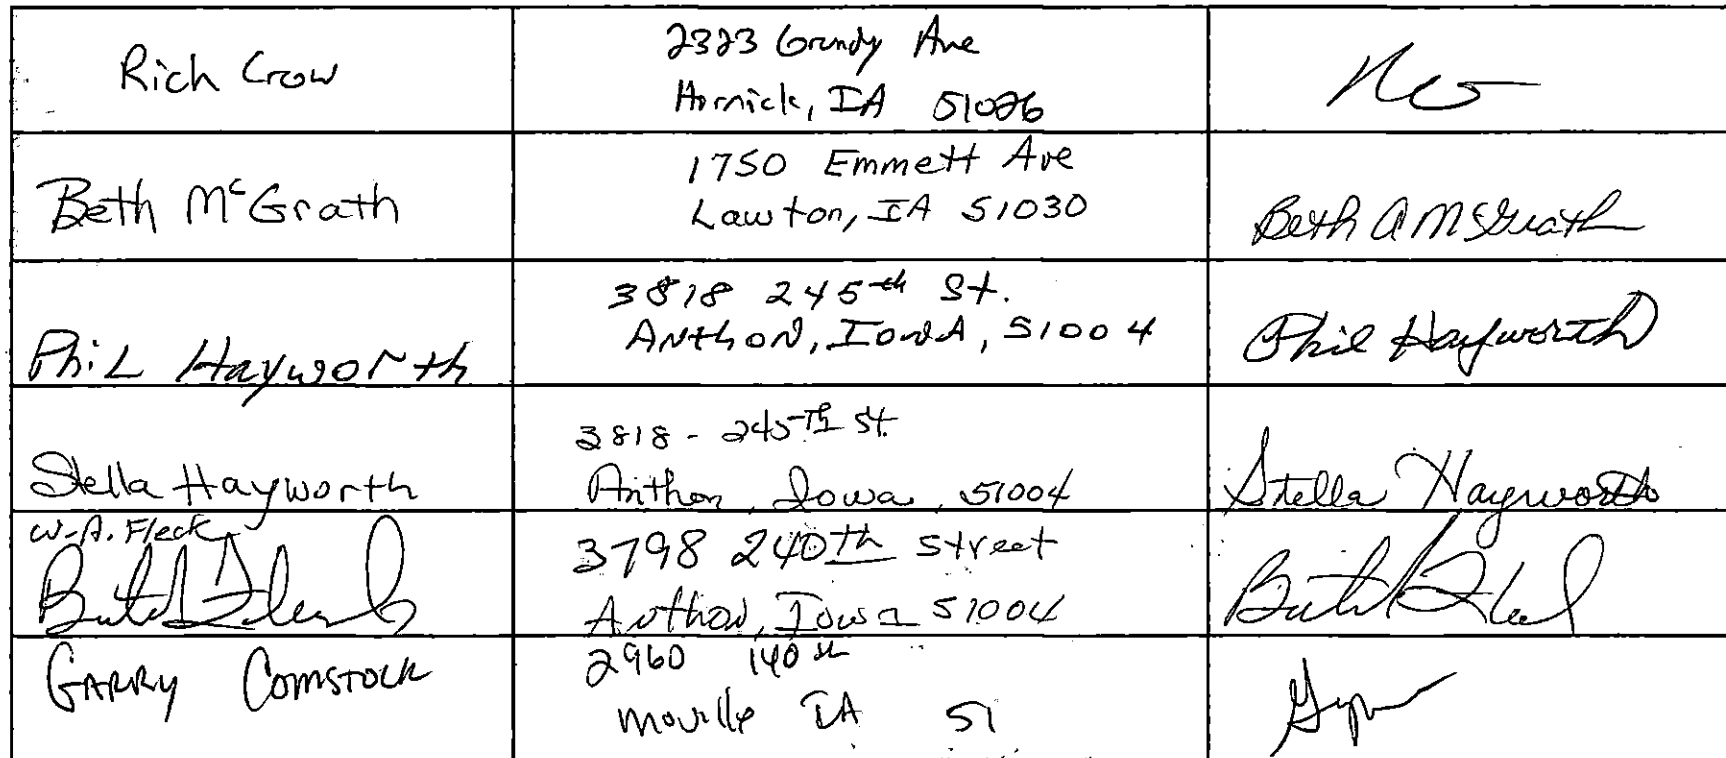 Rich Crow
2323 Grundy Ave
Hornick, IA 51026
Beth McGrath
1750 Emmett Ave
Lawton, IA 51030
Beth A McGrath
Phil Hayworth
3818 245th St.
Anthon, Iowa, 51004
Phil Hayworth
Stella Hayworth
3818 - 245TH St.
Anthon, Iowa, 51004
Stella Hayworth
W.A. Fleck
3798 240th Street
Anthon, Iowa 51004
GARRY COMSTOCK
2960 140th
Moville IA 51